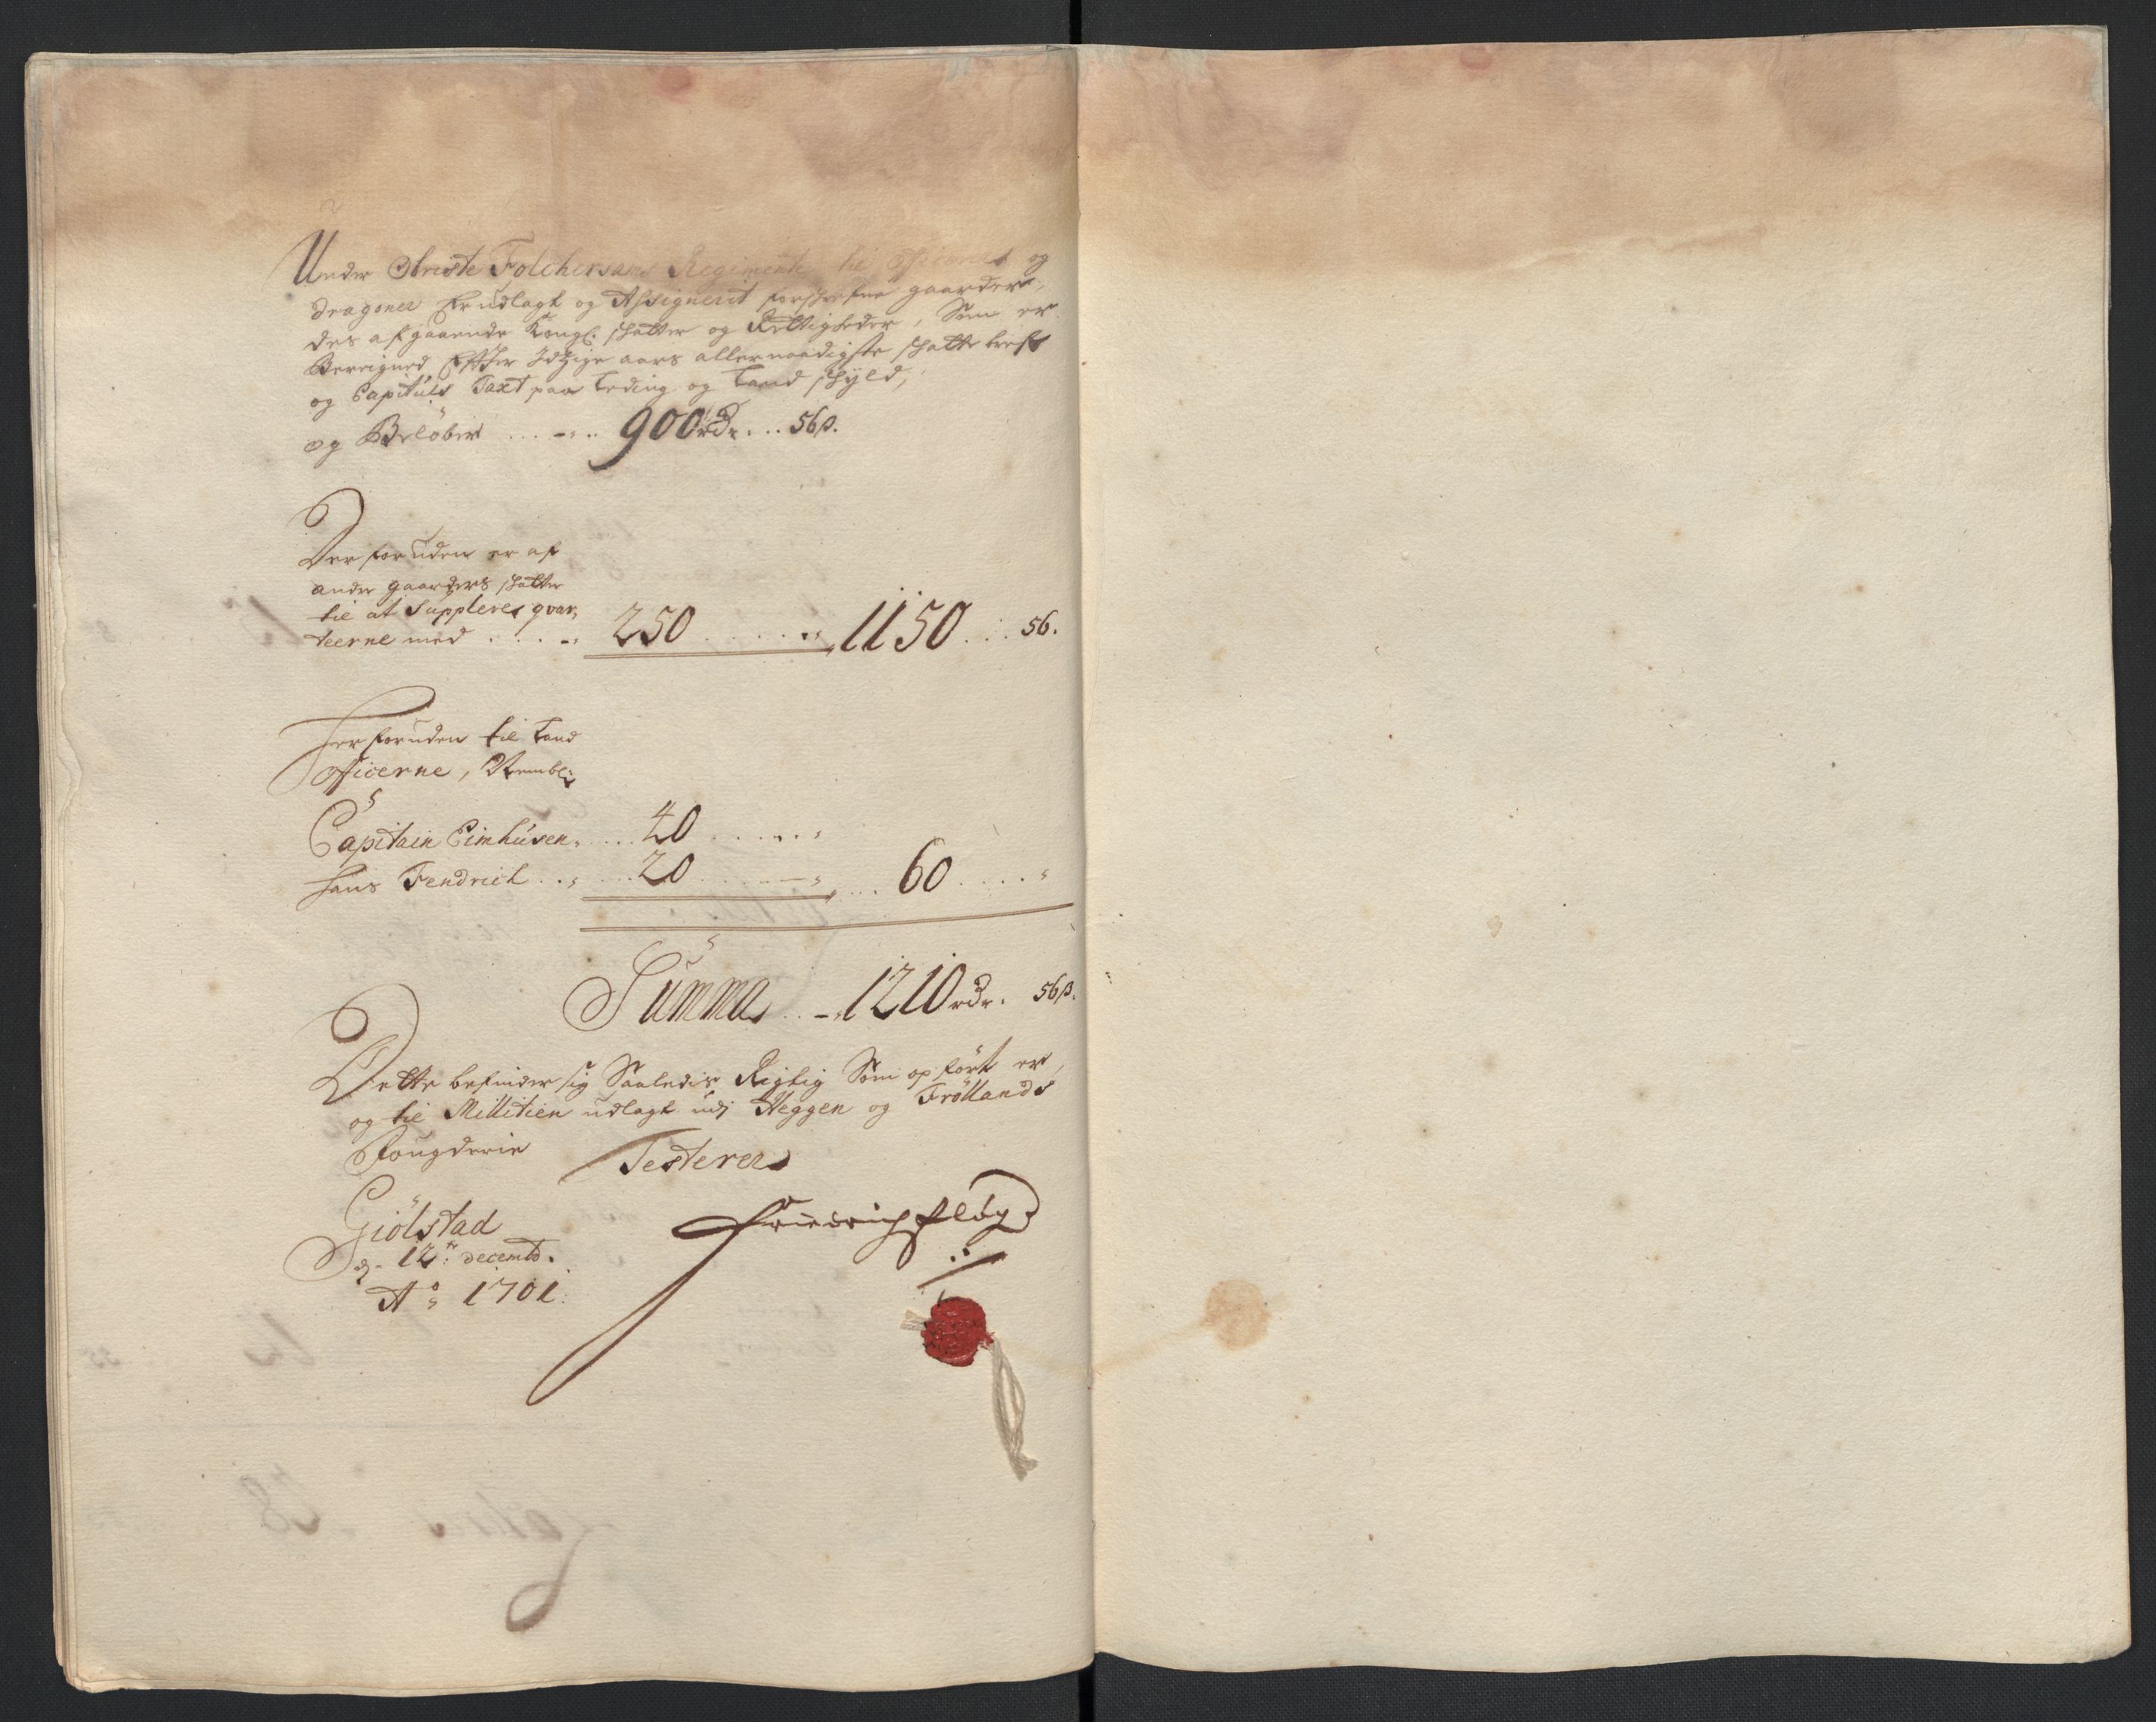 Under Obriste Folchersams Regimente til officerer og
dragoner Er udlagt og Assignerit forschrefne gaarder,
des afgaaende Kongl: schatter og Rettigheder, Som er
Bereigned Efter Idzige aars allernaadigste schatte breff
og Capituls Taxt paa Leding og Land schyld,
og Beløber ... 900 rdr. ... 56 ß.
Der foruden er af
andre gaarders schatter
til at Supplere qvar,
teerne med .... 250 ..... 1150 ... 56.
Her foruden til Land
officerne, Nembl:
Capitain Eimhúsen, ... 40 .....
Hans Fendrich ... 20 ..... 60 ....
Summa ... 1210 rdr. 56 ß.
Dette befinder sig Saaledis Rigtig Som opført er,
og til Militien udlagt udj Heggen og Frøllands
Fougderie Testerer
Giølstad
d. 12te: decemb.
Ao: 1701.
Friedrich Pfløg